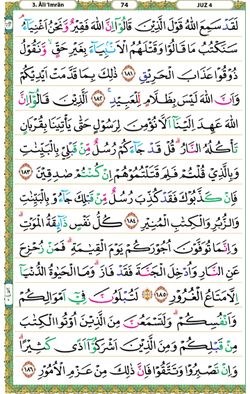 3. Āli 'Imrān 74 JUZ 4
لَقَدْ سَمِعَ اللّٰهُ قَوْلَ الَّذِيْنَ قَالُوْٓا اِنَّ اللّٰهَ فَقِيْرٌ وَّنَحْنُ اَغْنِيَاۤءُۘ
سَنَكْتُبُ مَا قَالُوْا وَقَتْلَهُمُ الْاَنْۢبِيَاۤءَ بِغَيْرِ حَقٍّۙ وَّنَقُوْلُ
ذُوْقُوْا عَذَابَ الْحَرِيْقِ ١٨١ ذٰلِكَ بِمَا قَدَّمَتْ اَيْدِيْكُمْ
وَاَنَّ اللّٰهَ لَيْسَ بِظَلَّامٍ لِّلْعَبِيْدِۚ ١٨٢ اَلَّذِيْنَ قَالُوْٓا اِنَّ
اللّٰهَ عَهِدَ اِلَيْنَآ اَلَّا نُؤْمِنَ لِرَسُوْلٍ حَتّٰى يَأْتِيَنَا بِقُرْبَانٍ
تَأْكُلُهُ النَّارُۗ قُلْ قَدْ جَاۤءَكُمْ رُسُلٌ مِّنْ قَبْلِيْ بِالْبَيِّنٰتِ
وَبِالَّذِيْ قُلْتُمْ فَلِمَ قَتَلْتُمُوْهُمْ اِنْ كُنْتُمْ صٰدِقِيْنَ ١٨٣
فَاِنْ كَذَّبُوْكَ فَقَدْ كُذِّبَ رُسُلٌ مِّنْ قَبْلِكَ جَاۤءُوْ بِالْبَيِّنٰتِ
وَالزُّبُرِ وَالْكِتٰبِ الْمُنِيْرِ ١٨٤ كُلُّ نَفْسٍ ذَاۤىِٕقَةُ الْمَوْتِۗ
وَاِنَّمَا تُوَفَّوْنَ اُجُوْرَكُمْ يَوْمَ الْقِيٰمَةِۗ فَمَنْ زُحْزِحَ
عَنِ النَّارِ وَاُدْخِلَ الْجَنَّةَ فَقَدْ فَازَۗ وَمَا الْحَيٰوةُ الدُّنْيَآ
اِلَّا مَتَاعُ الْغُرُوْرِ ١٨٥ لَتُبْلَوُنَّ فِيْٓ اَمْوَالِكُمْ
وَاَنْفُسِكُمْۗ وَلَتَسْمَعُنَّ مِنَ الَّذِيْنَ اُوْتُوا الْكِتٰبَ
مِنْ قَبْلِكُمْ وَمِنَ الَّذِيْنَ اَشْرَكُوْٓا اَذًى كَثِيْرًاۗ
وَاِنْ تَصْبِرُوْا وَتَتَّقُوْا فَاِنَّ ذٰلِكَ مِنْ عَزْمِ الْاُمُوْرِ ١٨٦